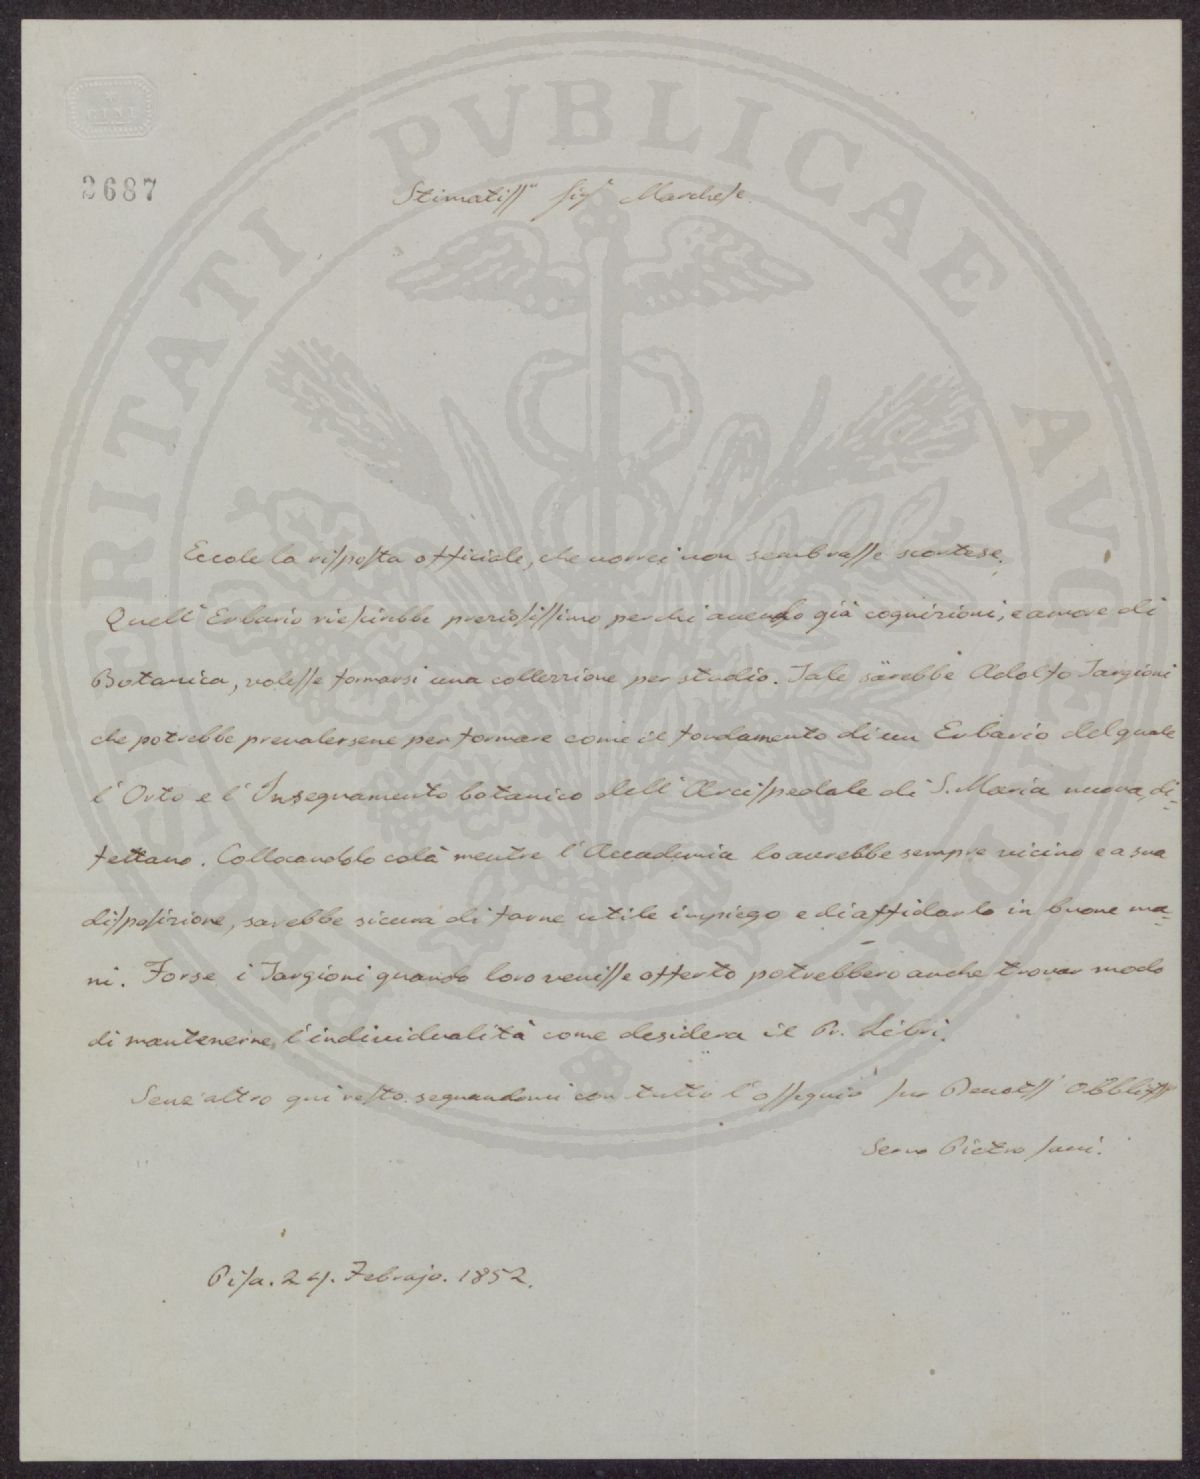 2687
Stimatiss.º Sig.r Marchese
Eccole la risposta officiale, che vorrei non sembrasse scortese.
Quell'Erbario riescirebbe preziosissimo per chi avendo già cognizioni, e amore di
Botanica, volesse formarsi una collezzione per studio. Tale sarebbe Adolfo Targioni
che potrebbe prevalersene per formare come il fondamento di un Erbario del quale
l'Orto e l'Insegnamento botanico dell'Arcispedale di S. Maria nuova, di=
fettano. Collocandolo colà mentre l'Accademia lo avrebbe sempre vicino e a sua
disposizione, sarebbe sicura di farne utile impiego e di affidarlo in buone ma=
ni. Forse i Targioni quando loro venisse offerto potrebbero anche trovar modo
di mantenerne l'individualità come desidera il Pr. Libri.
Senz'altro qui resto segnandomi con tutto l'ossequio suo Devotiss Obbligss
Servo Pietro Savi.
Pisa. 24. Febrajo. 1852.
PROSPERITATI PVBLICAE AVGENDAE